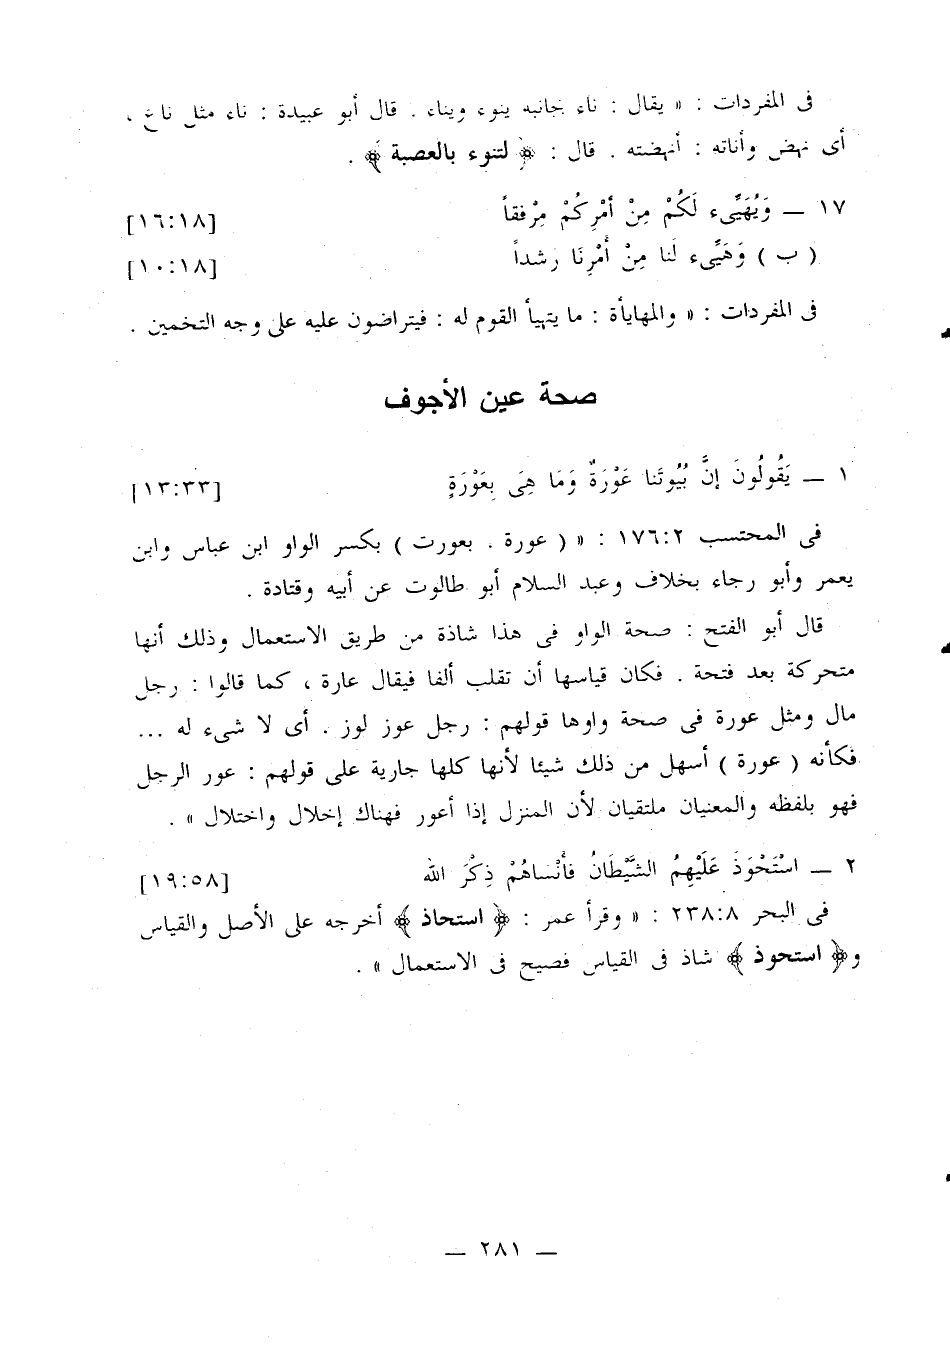 فى المفردات : « يقال : ناء بجانبه ينوء ويناء . قال أبو عبيدة : ناء مثل ناع ،
أى نهض وأناته : أنهضته . قال : ﴿ لتنوء بالعصبة ﴾ .
١٧ — وَيُهَيِّىء لَكُمْ مِنْ أمْرِكُمْ مِرْفقاً [١٦:١٨]
( ب ) وَهَيِّىء لَنا مِنْ أَمْرِنَا رشداً [١٠:١٨]
فى المفردات : « والمهايأة : ما يتهيأ القوم له : فيتراضون عليه على وجه التخمين .
صحة عين الأجوف
١ — يَقُولُونَ إنَّ بُيُوتَنا عَوْرَةٌ وَمَا هِىَ بِعَوْرَةٍ [١٣:٣٣]
فى المحتسب ١٧٦:٢ : « ( عورة . بعورت ) بكسر الواو ابن عباس وابن
يعمر وأبو رجاء بخلاف وعبد السلام أبو طالوت عن أبيه وقتادة .
قال أبو الفتح : صحة الواو فى هذا شاذة من طريق الاستعمال وذلك أنها
متحركة بعد فتحة . فكان قياسها أن تقلب ألفا فيقال عارة ، كما قالوا : رجل
مال ومثل عورة فى صحة واوها قولهم : رجل عوز لوز . أى لا شىء له ...
فكأنه ( عورة ) أسهل من ذلك شيئا لأنها كلها جارية على قولهم : عور الرجل
فهو بلفظه والمعنيان ملتقيان لأن المنزل إذا أعور فهناك إخلال واختلال » .
٢ — اسْتَحْوَذَ عَلَيْهِمُ الشَّيْطَانُ فأَنْساهُمْ ذِكْرَ الله [١٩:٥٨]
فى البحر ٢٣٨:٨ : « وقرأ عمر : ﴿ استحاذ ﴾ أخرجه على الأصل والقياس
و﴿ استحوذ ﴾ شاذ فى القياس فصيح فى الاستعمال » .
— ٢٨١ —